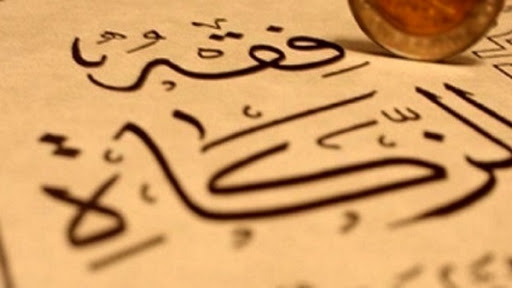 فِقْهُ
الزَّكَاةِ